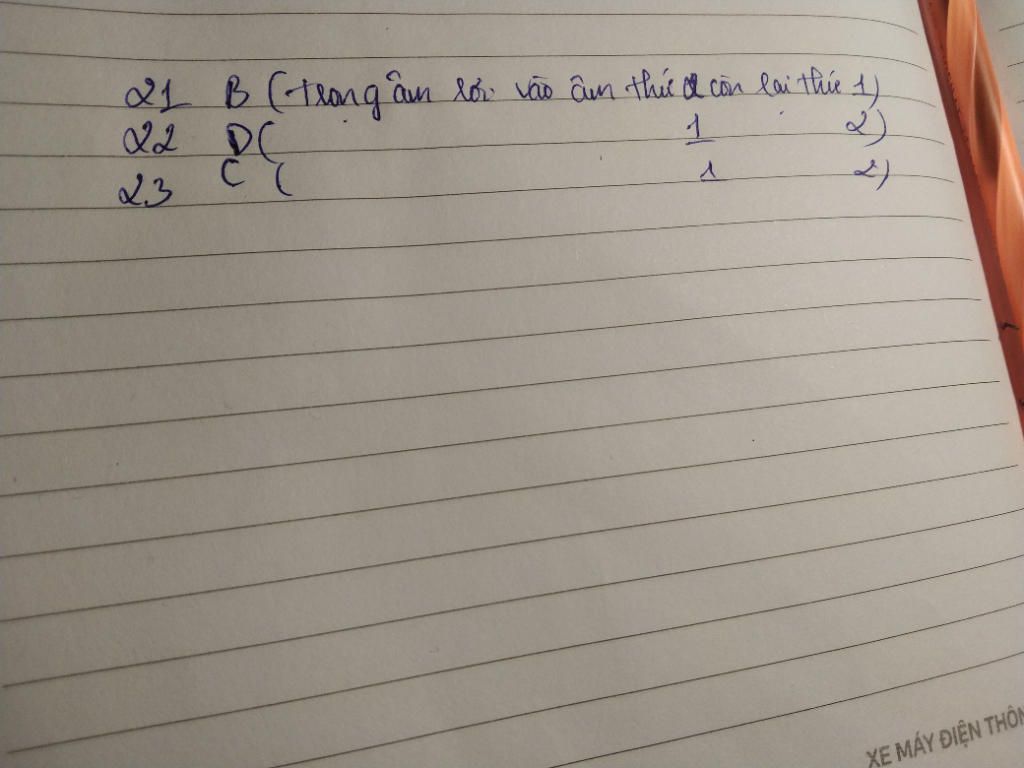 21 B (trọng âm rơi vào âm thứ 2 còn lại thứ 1)
22 D( 1 2)
23 C ( 1 2)
XE MÁY ĐIỆN THÔN